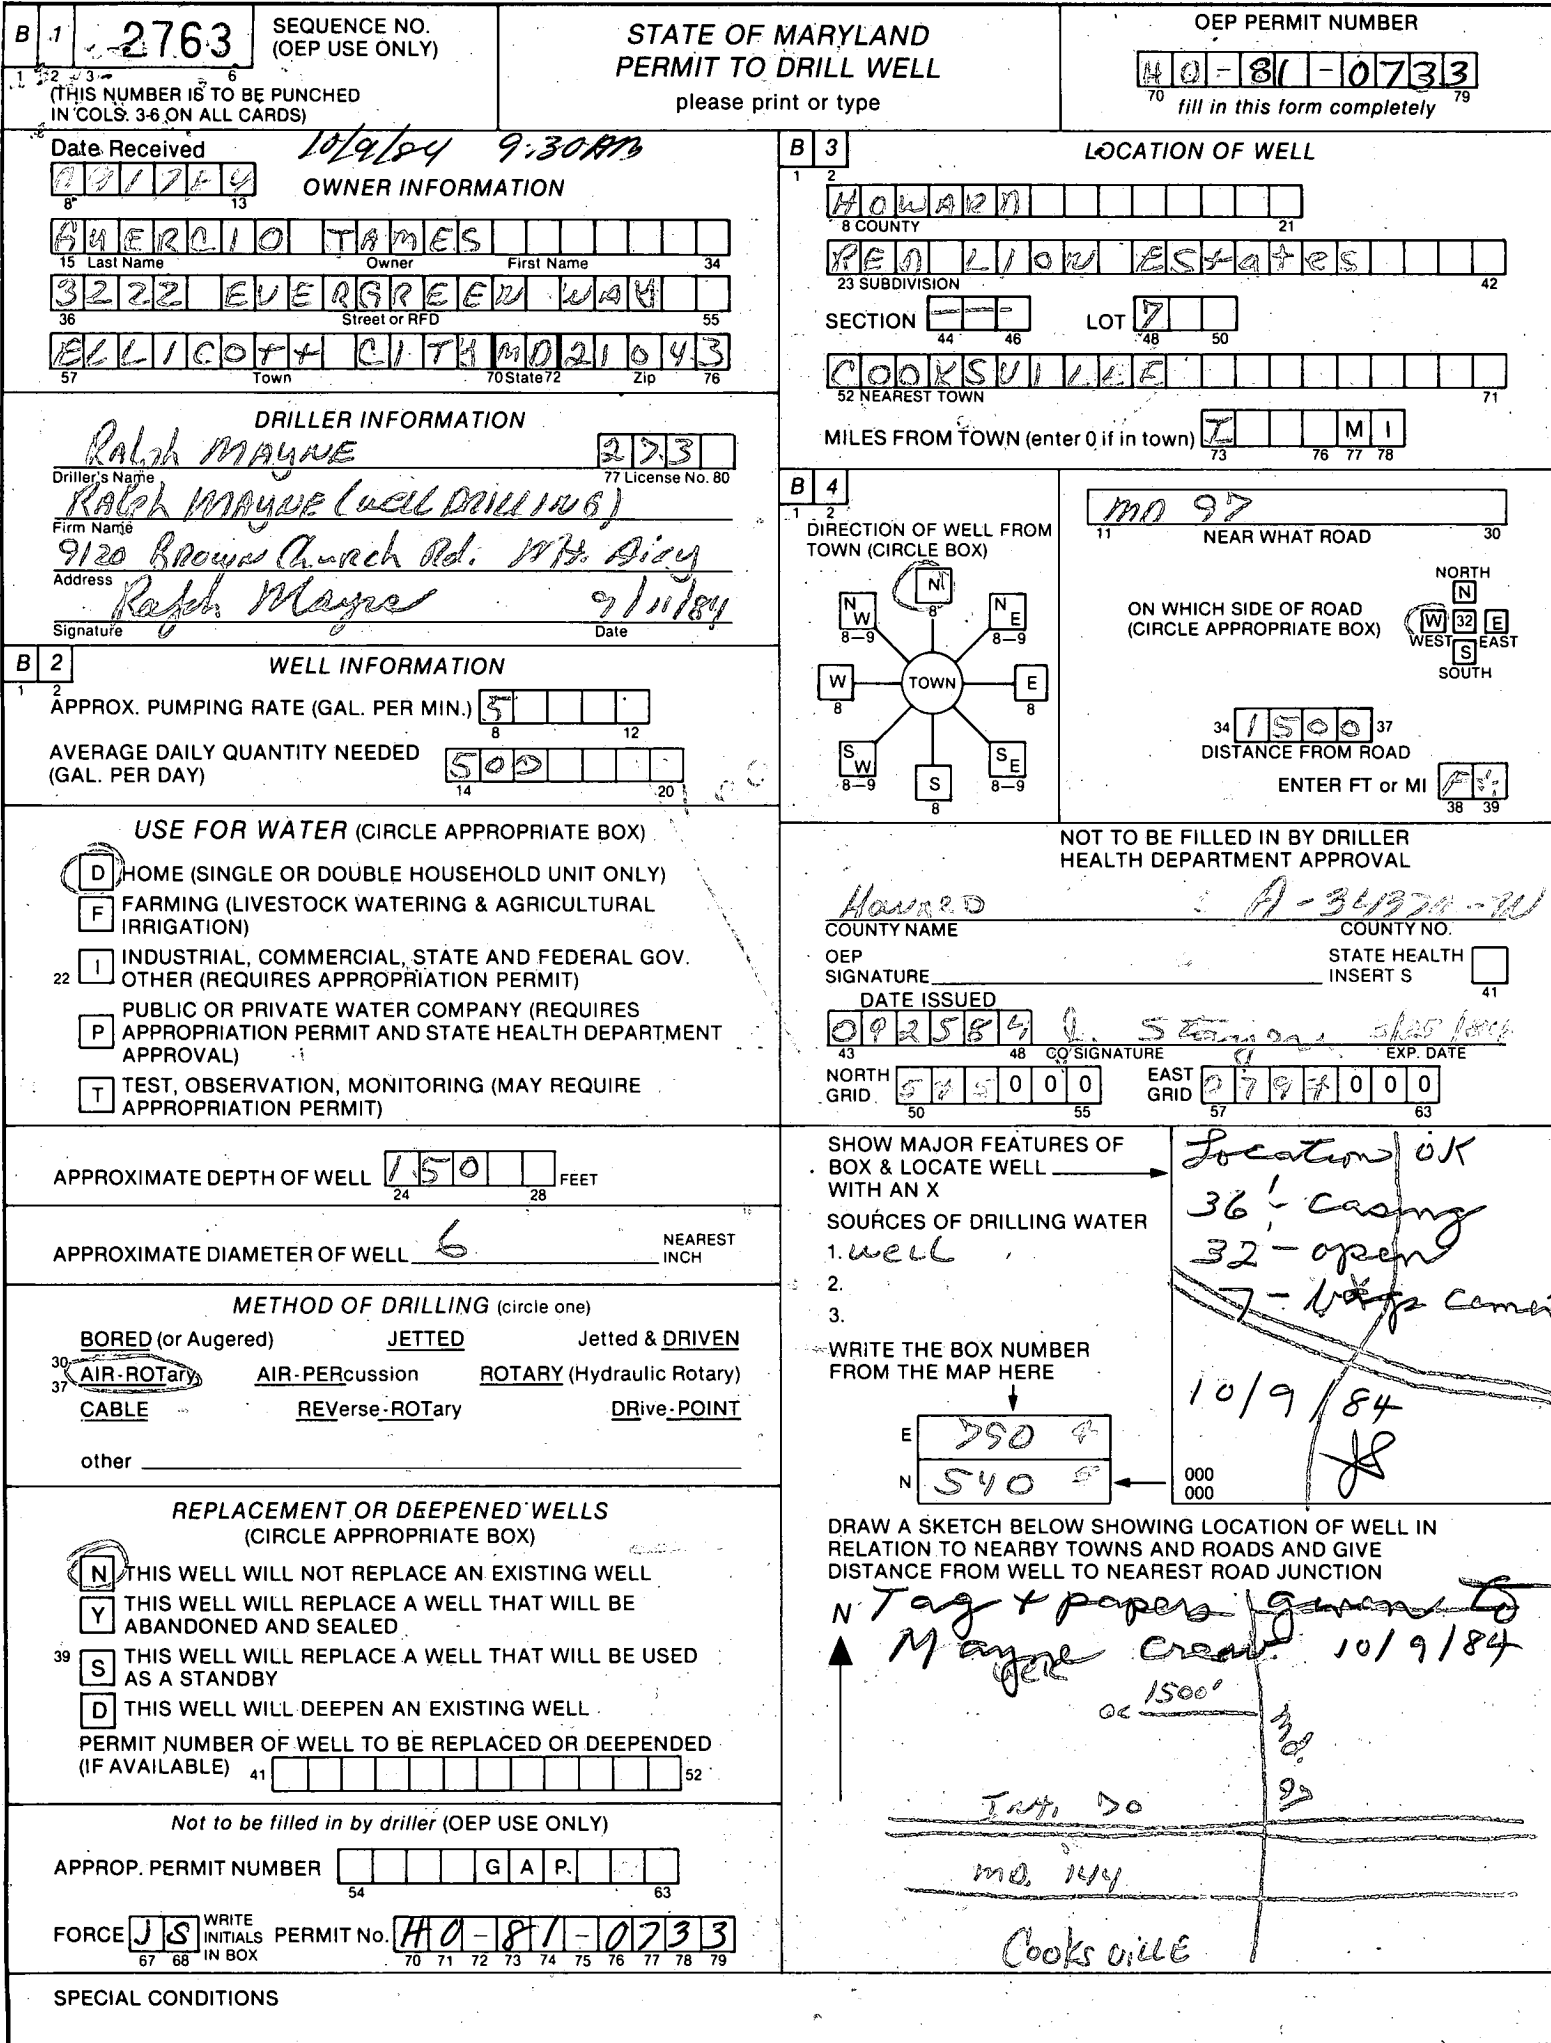 B 1 2763 SEQUENCE NO. (OEP USE ONLY)
1 2 3 6
(THIS NUMBER IS TO BE PUNCHED
IN COLS. 3-6 ON ALL CARDS)
STATE OF MARYLAND
PERMIT TO DRILL WELL
please print or type
OEP PERMIT NUMBER
HO-81-0733
70 79
fill in this form completely
Date Received 10/9/84 9:30AM
8 13
OWNER INFORMATION
GUERCIO JAMES
15 Last Name Owner First Name 34
3222 EVERGREEN WAY
36 Street or RFD 55
ELLICOTT CITY MD 21043
57 Town 70 State 72 Zip 76
DRILLER INFORMATION
Ralph MAYNE 273
Driller's Name 77 License No. 80
RALPH MAYNE (WELL DRILLING)
Firm Name
9120 Brown Church Rd. Mt. Airy
Address
Ralph Mayne 9/11/84
Signature Date
B 2 WELL INFORMATION
1 2
APPROX. PUMPING RATE (GAL. PER MIN.) 5
8 12
AVERAGE DAILY QUANTITY NEEDED
(GAL. PER DAY) 500
14 20
USE FOR WATER (CIRCLE APPROPRIATE BOX)
D HOME (SINGLE OR DOUBLE HOUSEHOLD UNIT ONLY)
F FARMING (LIVESTOCK WATERING & AGRICULTURAL
IRRIGATION)
22 I INDUSTRIAL, COMMERCIAL, STATE AND FEDERAL GOV.
OTHER (REQUIRES APPROPRIATION PERMIT)
P PUBLIC OR PRIVATE WATER COMPANY (REQUIRES
APPROPRIATION PERMIT AND STATE HEALTH DEPARTMENT
APPROVAL)
T TEST, OBSERVATION, MONITORING (MAY REQUIRE
APPROPRIATION PERMIT)
APPROXIMATE DEPTH OF WELL 150 FEET
24 28
APPROXIMATE DIAMETER OF WELL 6 NEAREST
INCH
METHOD OF DRILLING (circle one)
BORED (or Augered) JETTED Jetted & DRIVEN
30 AIR-ROTary AIR-PERcussion ROTARY (Hydraulic Rotary)
37
CABLE REVerse-ROTary DRive-POINT
other
REPLACEMENT OR DEEPENED WELLS
(CIRCLE APPROPRIATE BOX)
N THIS WELL WILL NOT REPLACE AN EXISTING WELL
Y THIS WELL WILL REPLACE A WELL THAT WILL BE
ABANDONED AND SEALED
39 S THIS WELL WILL REPLACE A WELL THAT WILL BE USED
AS A STANDBY
D THIS WELL WILL DEEPEN AN EXISTING WELL
PERMIT NUMBER OF WELL TO BE REPLACED OR DEEPENED
(IF AVAILABLE) 41 52
Not to be filled in by driller (OEP USE ONLY)
APPROP. PERMIT NUMBER G A P.
54 63
FORCE JS WRITE INITIALS IN BOX PERMIT No. HO-81-0733
67 68 70 71 72 73 74 75 76 77 78 79
SPECIAL CONDITIONS
B 3 LOCATION OF WELL
1 2
HOWARD
8 COUNTY 21
RED LION EStates
23 SUBDIVISION 42
SECTION --- LOT 7
44 46 48 50
COOKSVILLE
52 NEAREST TOWN 71
MILES FROM TOWN (enter 0 if in town) I M I
73 76 77 78
B 4
1 2
DIRECTION OF WELL FROM
TOWN (CIRCLE BOX)
N
8
NW NE
8-9 8-9
W TOWN E
8 8
SW SE
8-9 8-9
S
8
MD 97
11 NEAR WHAT ROAD 30
ON WHICH SIDE OF ROAD
(CIRCLE APPROPRIATE BOX)
NORTH
N
W 32 E
WEST EAST
S
SOUTH
34 1500 37
DISTANCE FROM ROAD
ENTER FT or MI Ft
38 39
NOT TO BE FILLED IN BY DRILLER
HEALTH DEPARTMENT APPROVAL
Howard
COUNTY NAME COUNTY NO.
OEP
SIGNATURE
STATE HEALTH
INSERT S
41
DATE ISSUED
092584
43 48 CO SIGNATURE EXP. DATE
NORTH
GRID 000
50 55
EAST
GRID 000
57 63
SHOW MAJOR FEATURES OF
BOX & LOCATE WELL
WITH AN X
SOURCES OF DRILLING WATER
1. well
2.
3.
WRITE THE BOX NUMBER
FROM THE MAP HERE
E 790
N 540
Location OK
36'- Casing
32'- open
7- bags cemen
10/9/84
JS
000
000
DRAW A SKETCH BELOW SHOWING LOCATION OF WELL IN
RELATION TO NEARBY TOWNS AND ROADS AND GIVE
DISTANCE FROM WELL TO NEAREST ROAD JUNCTION
N Tag + papers given to
Mayne crew 10/9/84
1500'
Md. 97
Int. 70
MD. 144
Cooksville